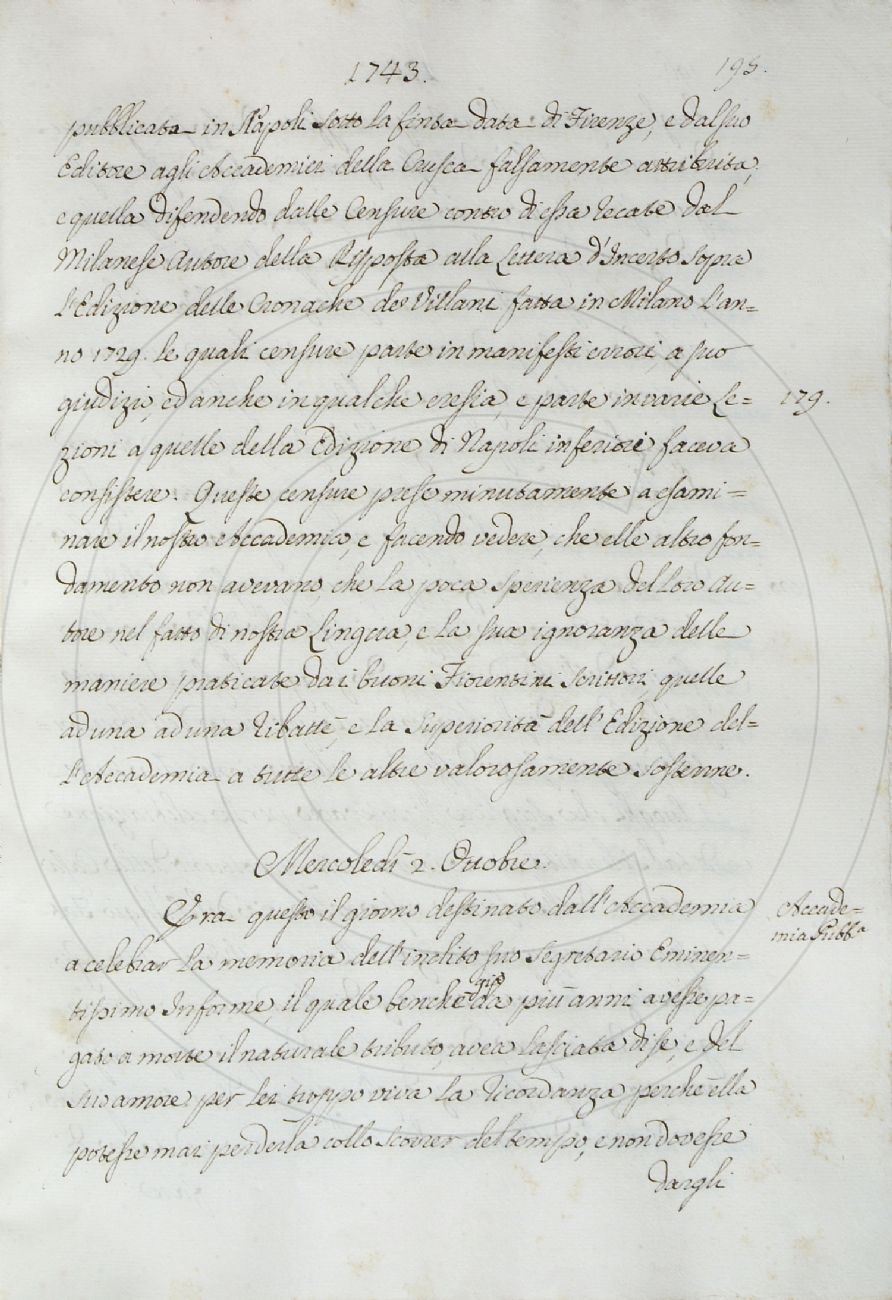 1743.
195.
pubblicata in Napoli sotto la finta data di Firenze, e dal suo
Editore agli Accademici della Crusca falsamente attribuita,
e quella difendendo dalle Censure contro di essa recate dal
Milanese Autore della Risposta alla Lettera d'Incerto sopra
l'Edizione delle Cronache de' Villani fatta in Milano l'an=
no 1729. le quali censure parte in manifesti errori, a suo
giudizi, ed anche in qualche eresia, e parte in varie Le=
179.
zioni a quelle della Edizione di Napoli inferiori faceva
consistere. Queste censure prese minutamente a esami=
nare il nostro Accademico, e facendo vedere, che elle altro fon=
damento non avevano, che la poca sperienza del loro Au=
tore nel fatto di nostra Lingua, e la sua ignoranza delle
maniere praticate dai buoni Fiorentini Scrittori, quelle
ad una ad una ribattè, e la superiorità dell'Edizione del=
l'Accademia a tutte le altre valorosamente sostenne.
Mercoledì 2. Ottobre.
Era questo il giorno destinato dall'Accademia
Accade=
mia Pubb.ª
a celebrar la memoria dell'inclito suo Segretario Eminen=
tissimo Informe, il quale benchè già da più anni avesse pa=
gato a morte il naturale tributo, avea lasciata di se, e del
suo amore per lei troppo viva la ricordanza perchè ella
potesse mai perderla collo scorrer del tempo, e non dovesse
dargli